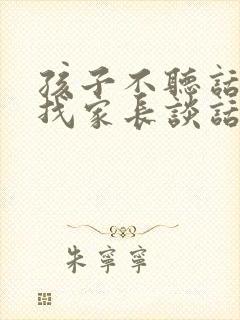 孩子不聽話
找家長談話
朱寧寧